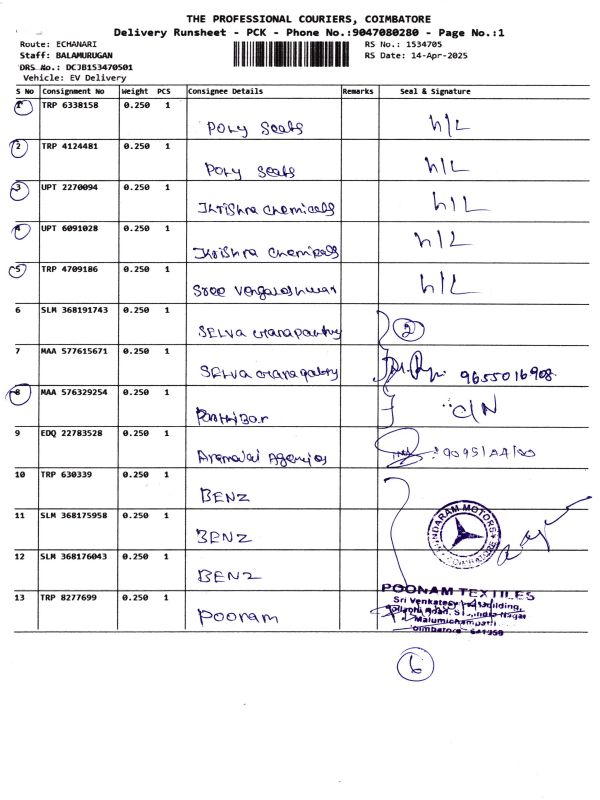 THE PROFESSIONAL COURIERS, COIMBATORE
Delivery Runsheet - PCK - Phone No.:9047080280 - Page No.:1
Route: ECHANARI RS No.: 1534705
Staff: BALAMURUGAN RS Date: 14-Apr-2025
DRS No.: DCJB153470501
Vehicle: EV Delivery
S No Consignment No Weight PCS Consignee Details Remarks Seal & Signature
1 TRP 6338158 0.250 1
Poly Seals h/L
2 TRP 4124481 0.250 1
Poly Seals h/L
3 UPT 2270094 0.250 1
Krishna chemicals h/L
4 UPT 6091028 0.250 1
Krishna chemicals h/L
5 TRP 4709186 0.250 1
Sree h/L
6 SLM 368191743 0.250 1
SELVA 2
7 MAA 577615671 0.250 1
SELVA 9655016908
8 MAA 576329254 0.250 1
C/N
9 EDQ 22783528 0.250 1
Agencies
10 TRP 630339 0.250 1
BENZ
11 SLM 368175958 0.250 1
BENZ
MOTORS
COIMBATORE
12 SLM 368176043 0.250 1
BENZ
13 TRP 8277699 0.250 1
Poonam
POONAM TEXTILES
Building,
Malumichampatti
6